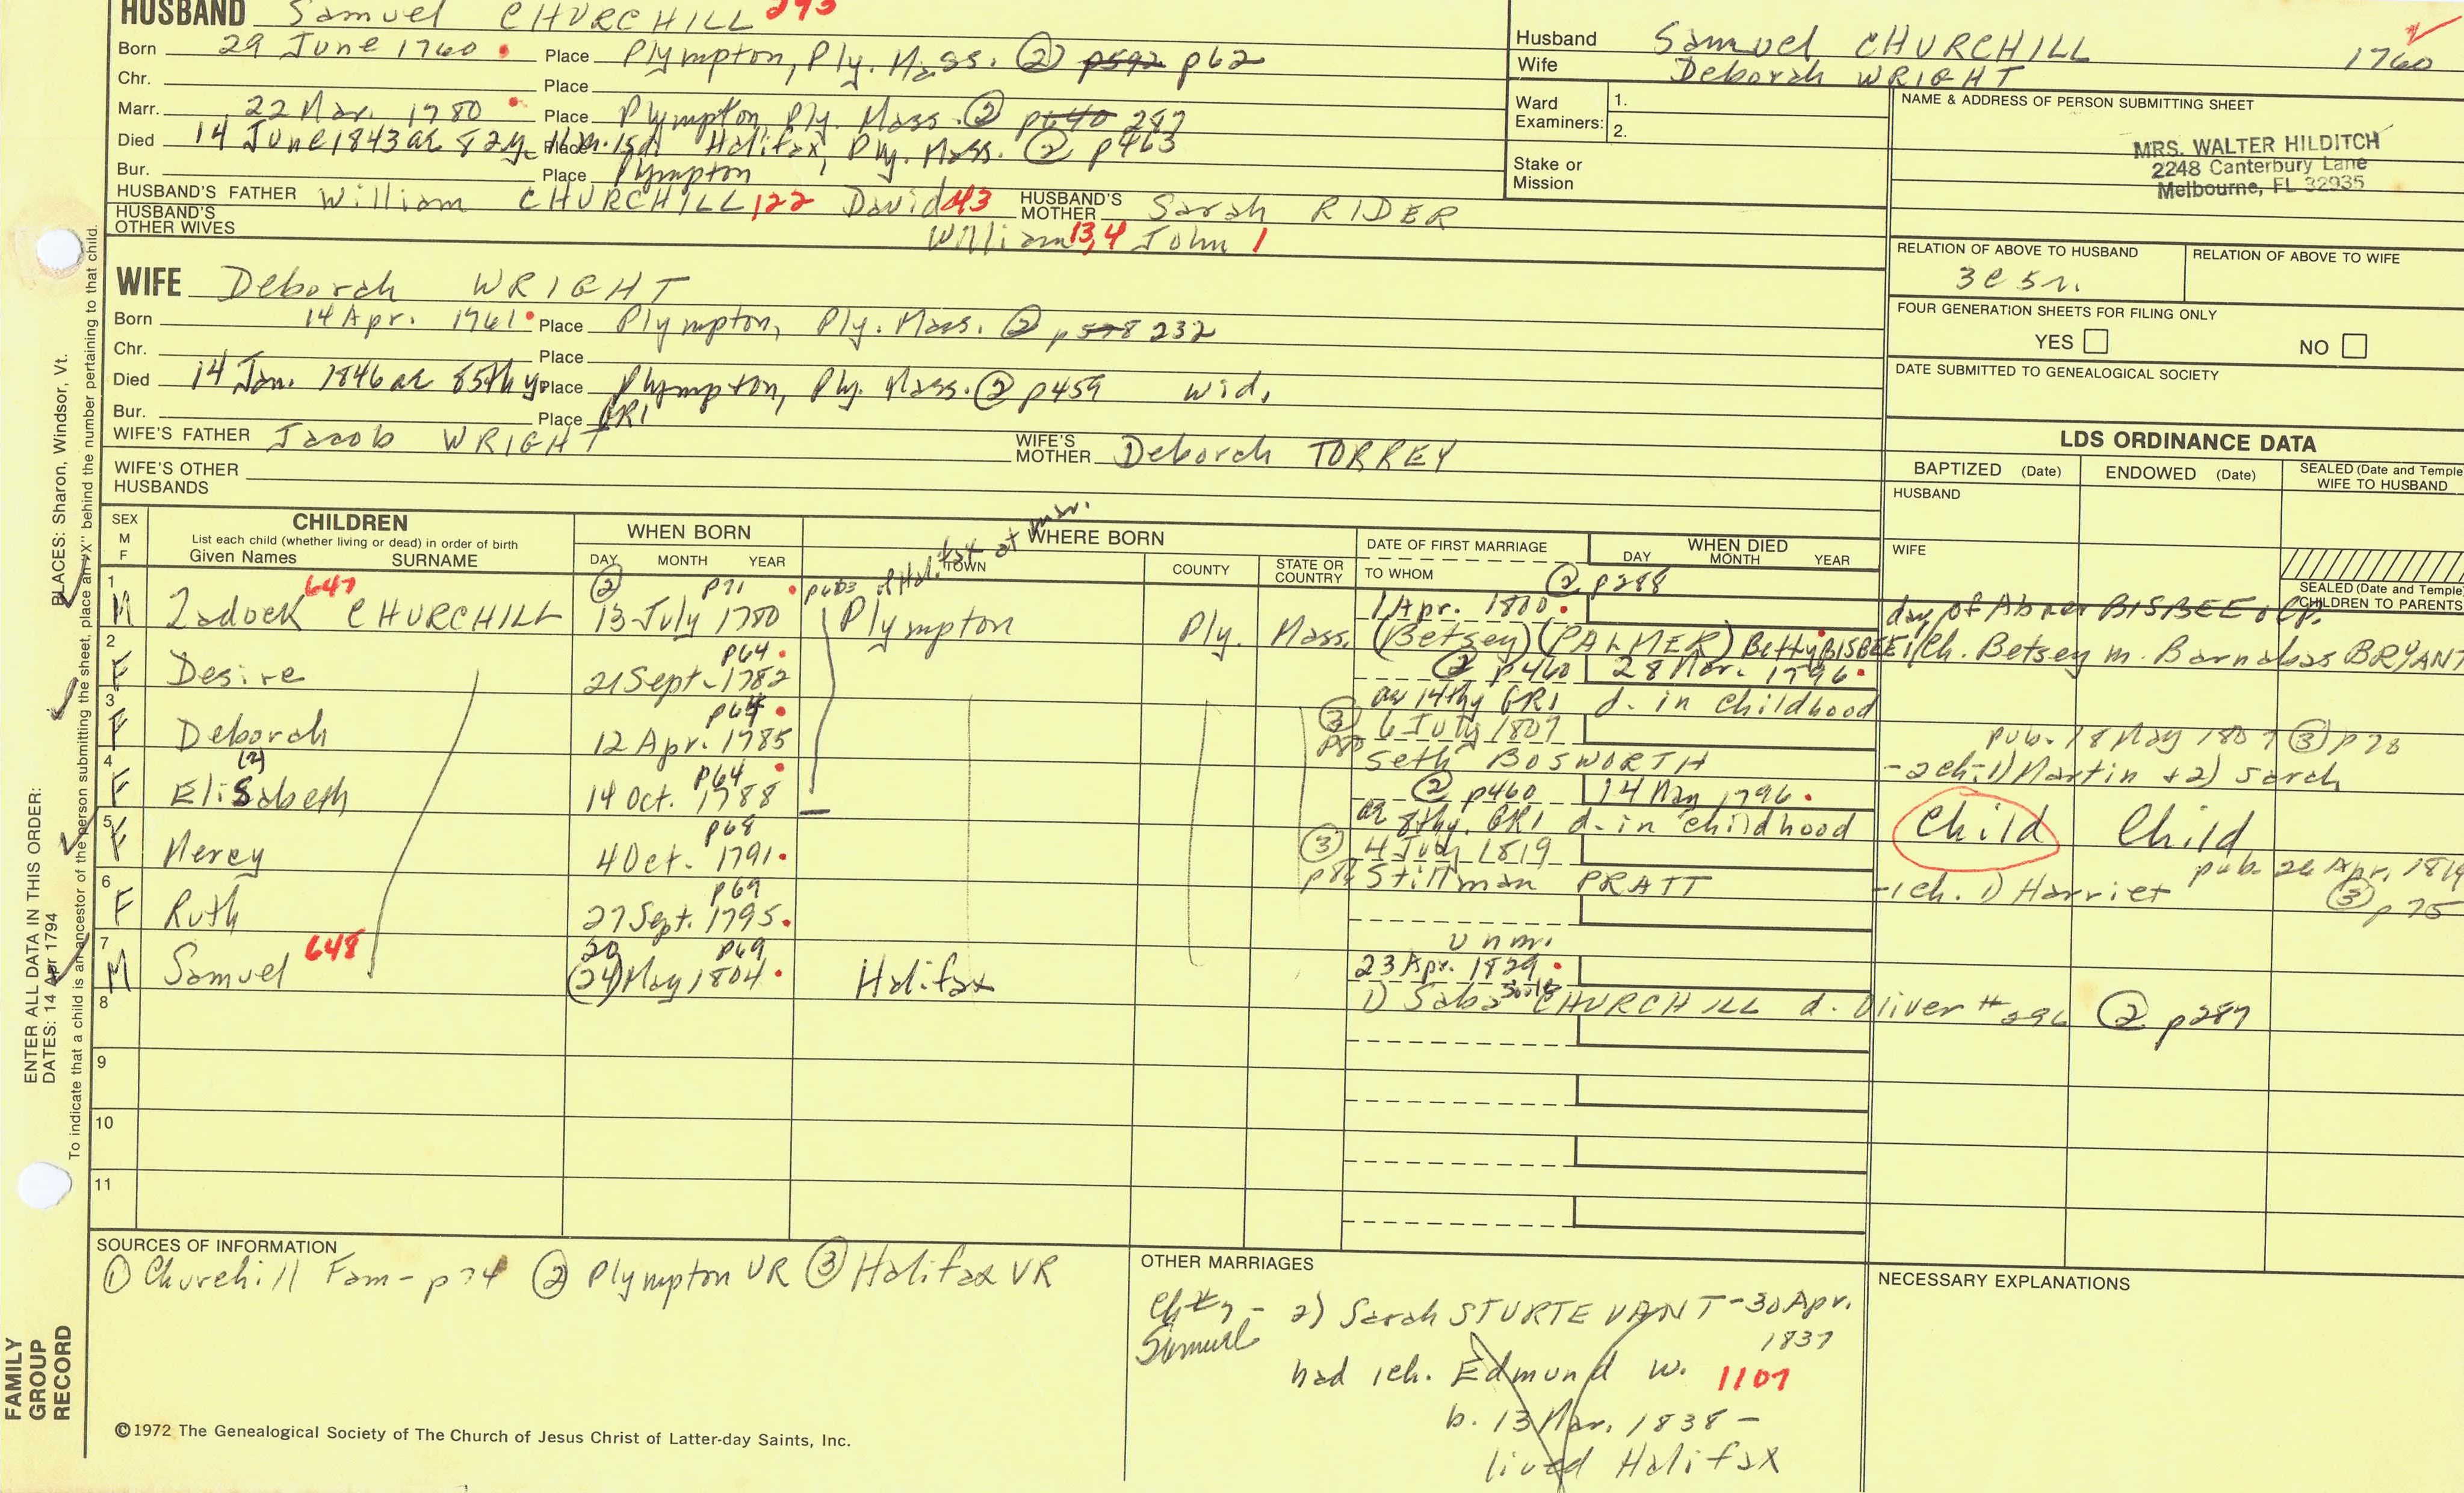 HUSBAND Samuel CHURCHILL 293
Born 29 June 1760 Place Plympton, Ply. Mass. ② p592 p62
Chr. Place
Marr. 22 Mar. 1780 Place Plympton Ply. Mass. ② p640 287
Died 14 June 1843 ae 82y. 11m. 15d. Place Halifax, Ply. Mass. ② p463
Bur. Place Plympton
HUSBAND'S FATHER William CHURCHILL 122 David 43 HUSBAND'S MOTHER Sarah RIDER
HUSBAND'S OTHER WIVES William 13,4 John 1
Husband Samuel CHURCHILL 1760
Wife Deborah WRIGHT
Ward Examiners: 1.
2.
Stake or Mission
NAME & ADDRESS OF PERSON SUBMITTING SHEET
MRS. WALTER HILDITCH
2248 Canterbury Lane
Melbourne, FL 32935
RELATION OF ABOVE TO HUSBAND RELATION OF ABOVE TO WIFE
3c 5r.
FOUR GENERATION SHEETS FOR FILING ONLY
YES NO
DATE SUBMITTED TO GENEALOGICAL SOCIETY
WIFE Deborah WRIGHT
Born 14 Apr. 1761 Place Plympton, Ply. Mass. ② p 598 232
Chr. Place
Died 14 Jan. 1846 ae 85th y Place Plympton, Ply. Mass. ② p459 wid.
Bur. Place GR1
WIFE'S FATHER Jacob WRIGHT WIFE'S MOTHER Deborah TORREY
WIFE'S OTHER HUSBANDS
LDS ORDINANCE DATA
BAPTIZED (Date) ENDOWED (Date) SEALED (Date and Temple WIFE TO HUSBAND
HUSBAND
WIFE
SEALED (Date and Temple CHILDREN TO PARENTS
SEX M F
CHILDREN
List each child (whether living or dead) in order of birth
Given Names SURNAME
WHEN BORN
DAY MONTH YEAR
WHERE BORN
TOWN COUNTY STATE OR COUNTRY
of Halifax at mar.
DATE OF FIRST MARRIAGE
TO WHOM
WHEN DIED
DAY MONTH YEAR
② p71 p403 ② p288
1 M Zadock CHURCHILL 647 13 July 1780 Plympton Ply. Mass. 1 Apr. 1800. day of Abner BISBEE of Ply.
(Betsey) (PALMER) Betty BISBEE 1 ch. Betsey m. Barnabas BRYANT
2 F Desire 21 Sept. 1782 p64 ② p460 28 Mar. 1796.
ae 14thy GR1 d. in childhood
3 F Deborah 12 Apr. 1785 p64 ③ p80 6 July 1807 pub. 18 May 1807 ③ p78
Seth BOSWORTH -2 ch: 1) Martin + 2) Sarah
4 F Elisabeth (z) 14 Oct. 1788 p64 ② p460 14 May 1796. Child Child
ae 8thy. GR1 d. in childhood
5 F Mercy 4 Oct. 1791. p68 ③ 4 July 1819 pub. 26 Apr. 1819 ③ p75
Stillman PRATT -1 ch. 1) Harriet
6 F Ruth 27 Sept. 1795. p69
unm.
7 M Samuel 648 20 (24) May 1804. p69 Halifax 23 Apr. 1829.
1) Saba Soule CHURCHILL d. Oliver #296 ② p287
8
9
10
11
SOURCES OF INFORMATION
① Churchill Fam - p74 ② Plympton VR ③ Halifax VR
OTHER MARRIAGES
Ch #7 - 2) Sarah STURTEVANT - 30 Apr.
Samuel 1837
had 1 ch. Edmund W. 1107
b. 13 Mar. 1838 -
lived Halifax
NECESSARY EXPLANATIONS
©1972 The Genealogical Society of The Church of Jesus Christ of Latter-day Saints, Inc.
FAMILY GROUP RECORD
ENTER ALL DATA IN THIS ORDER:
DATES: 14 Apr 1794
PLACES: Sharon, Windsor, Vt.
To indicate that a child is an ancestor of the person submitting the sheet, place an "X" behind the number pertaining to that child.